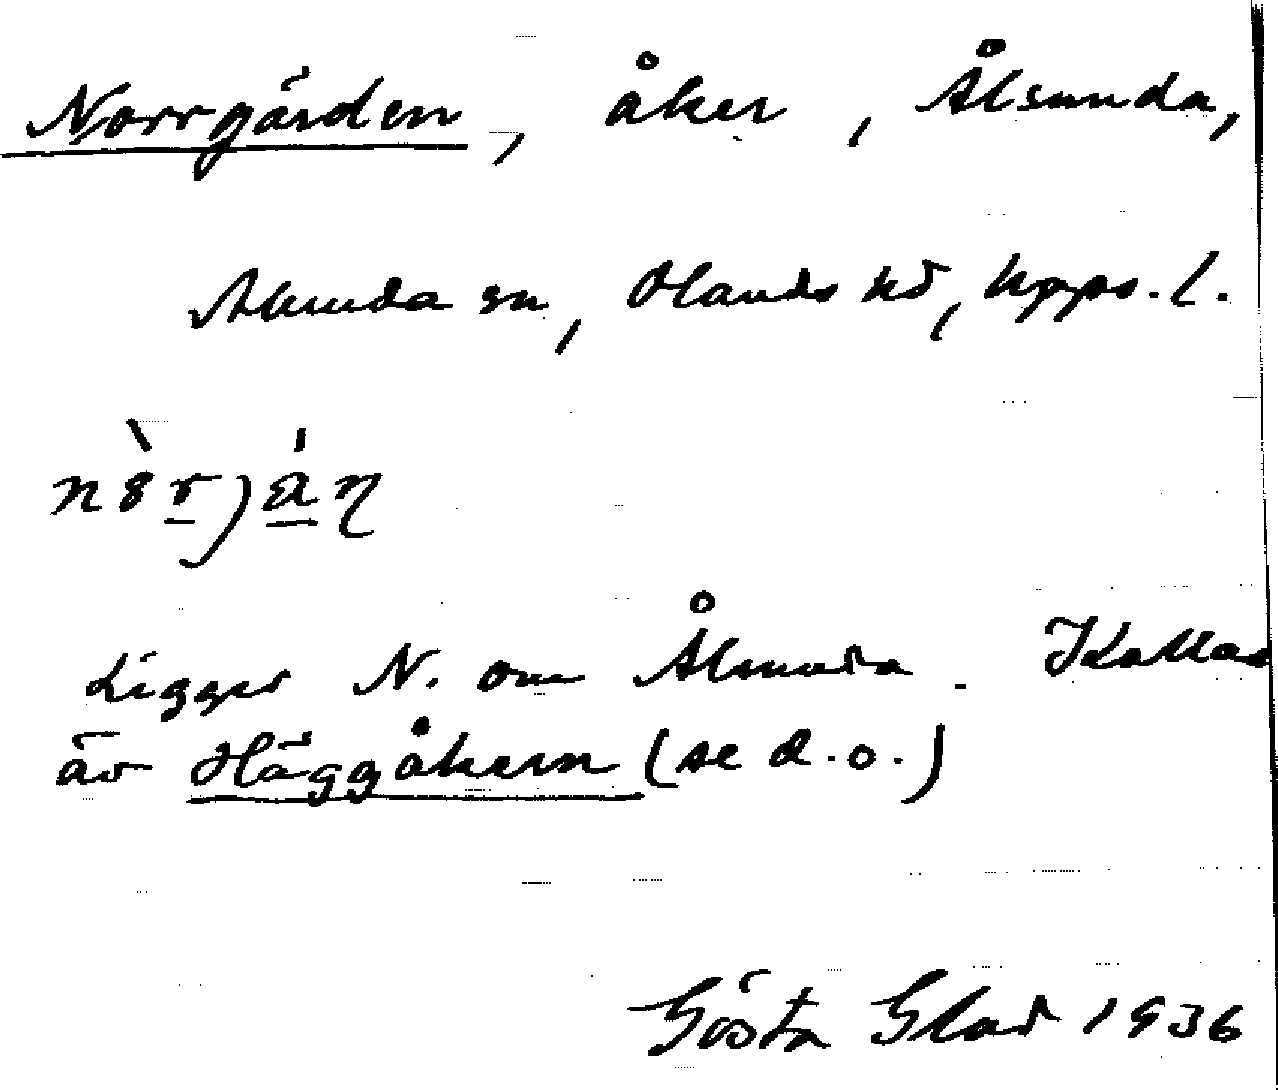 Norrgärden, åker, Ålsunda,
Alunda sn, Olands hd, Upps. l.
Ligger N. om Ålsunda. Kallas
äv Häggåkern (se d.o.)
Gösta Glad 1936